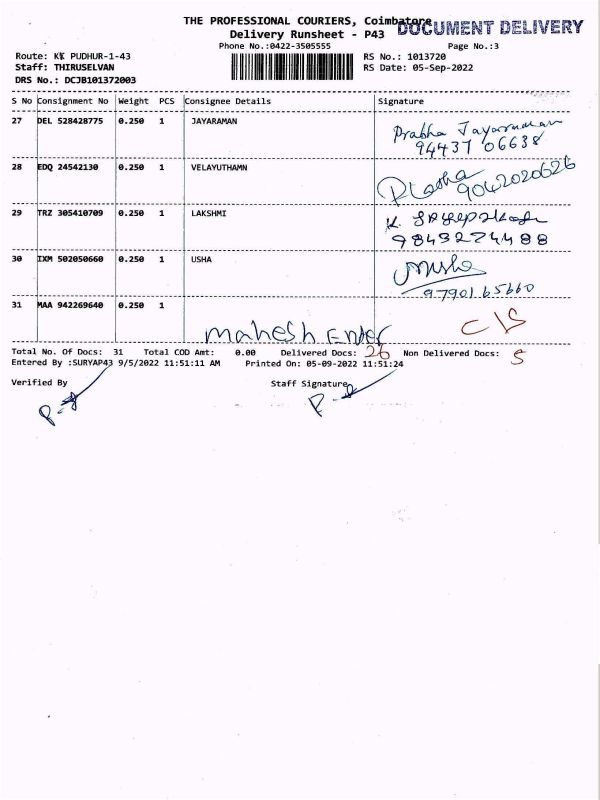 THE PROFESSIONAL COURIERS, Coimbatore
DOCUMENT DELIVERY
Delivery Runsheet - P43
Phone No.:0422-3505555 Page No.:3
Route: KK PUDHUR-1-43 RS No.: 1013720
Staff: THIRUSELVAN RS Date: 05-Sep-2022
DRS No.: DCJB101372003
S No Consignment No Weight PCS Consignee Details Signature
27 DEL 528428775 0.250 1 JAYARAMAN Prabha Jayaraman
94437 06638
28 EDQ 24542130 0.250 1 VELAYUTHAMN 9042020626
29 TRZ 305410709 0.250 1 LAKSHMI
9843274488
30 IXM 502050660 0.250 1 USHA Usha
97901 65660
31 MAA 942269640 0.250 1
Mahesh Enter
Total No. Of Docs: 31 Total COD Amt: 0.00 Delivered Docs: 26 Non Delivered Docs: 5
Entered By :SURYAP43 9/5/2022 11:51:11 AM Printed On: 05-09-2022 11:51:24
Verified By Staff Signature